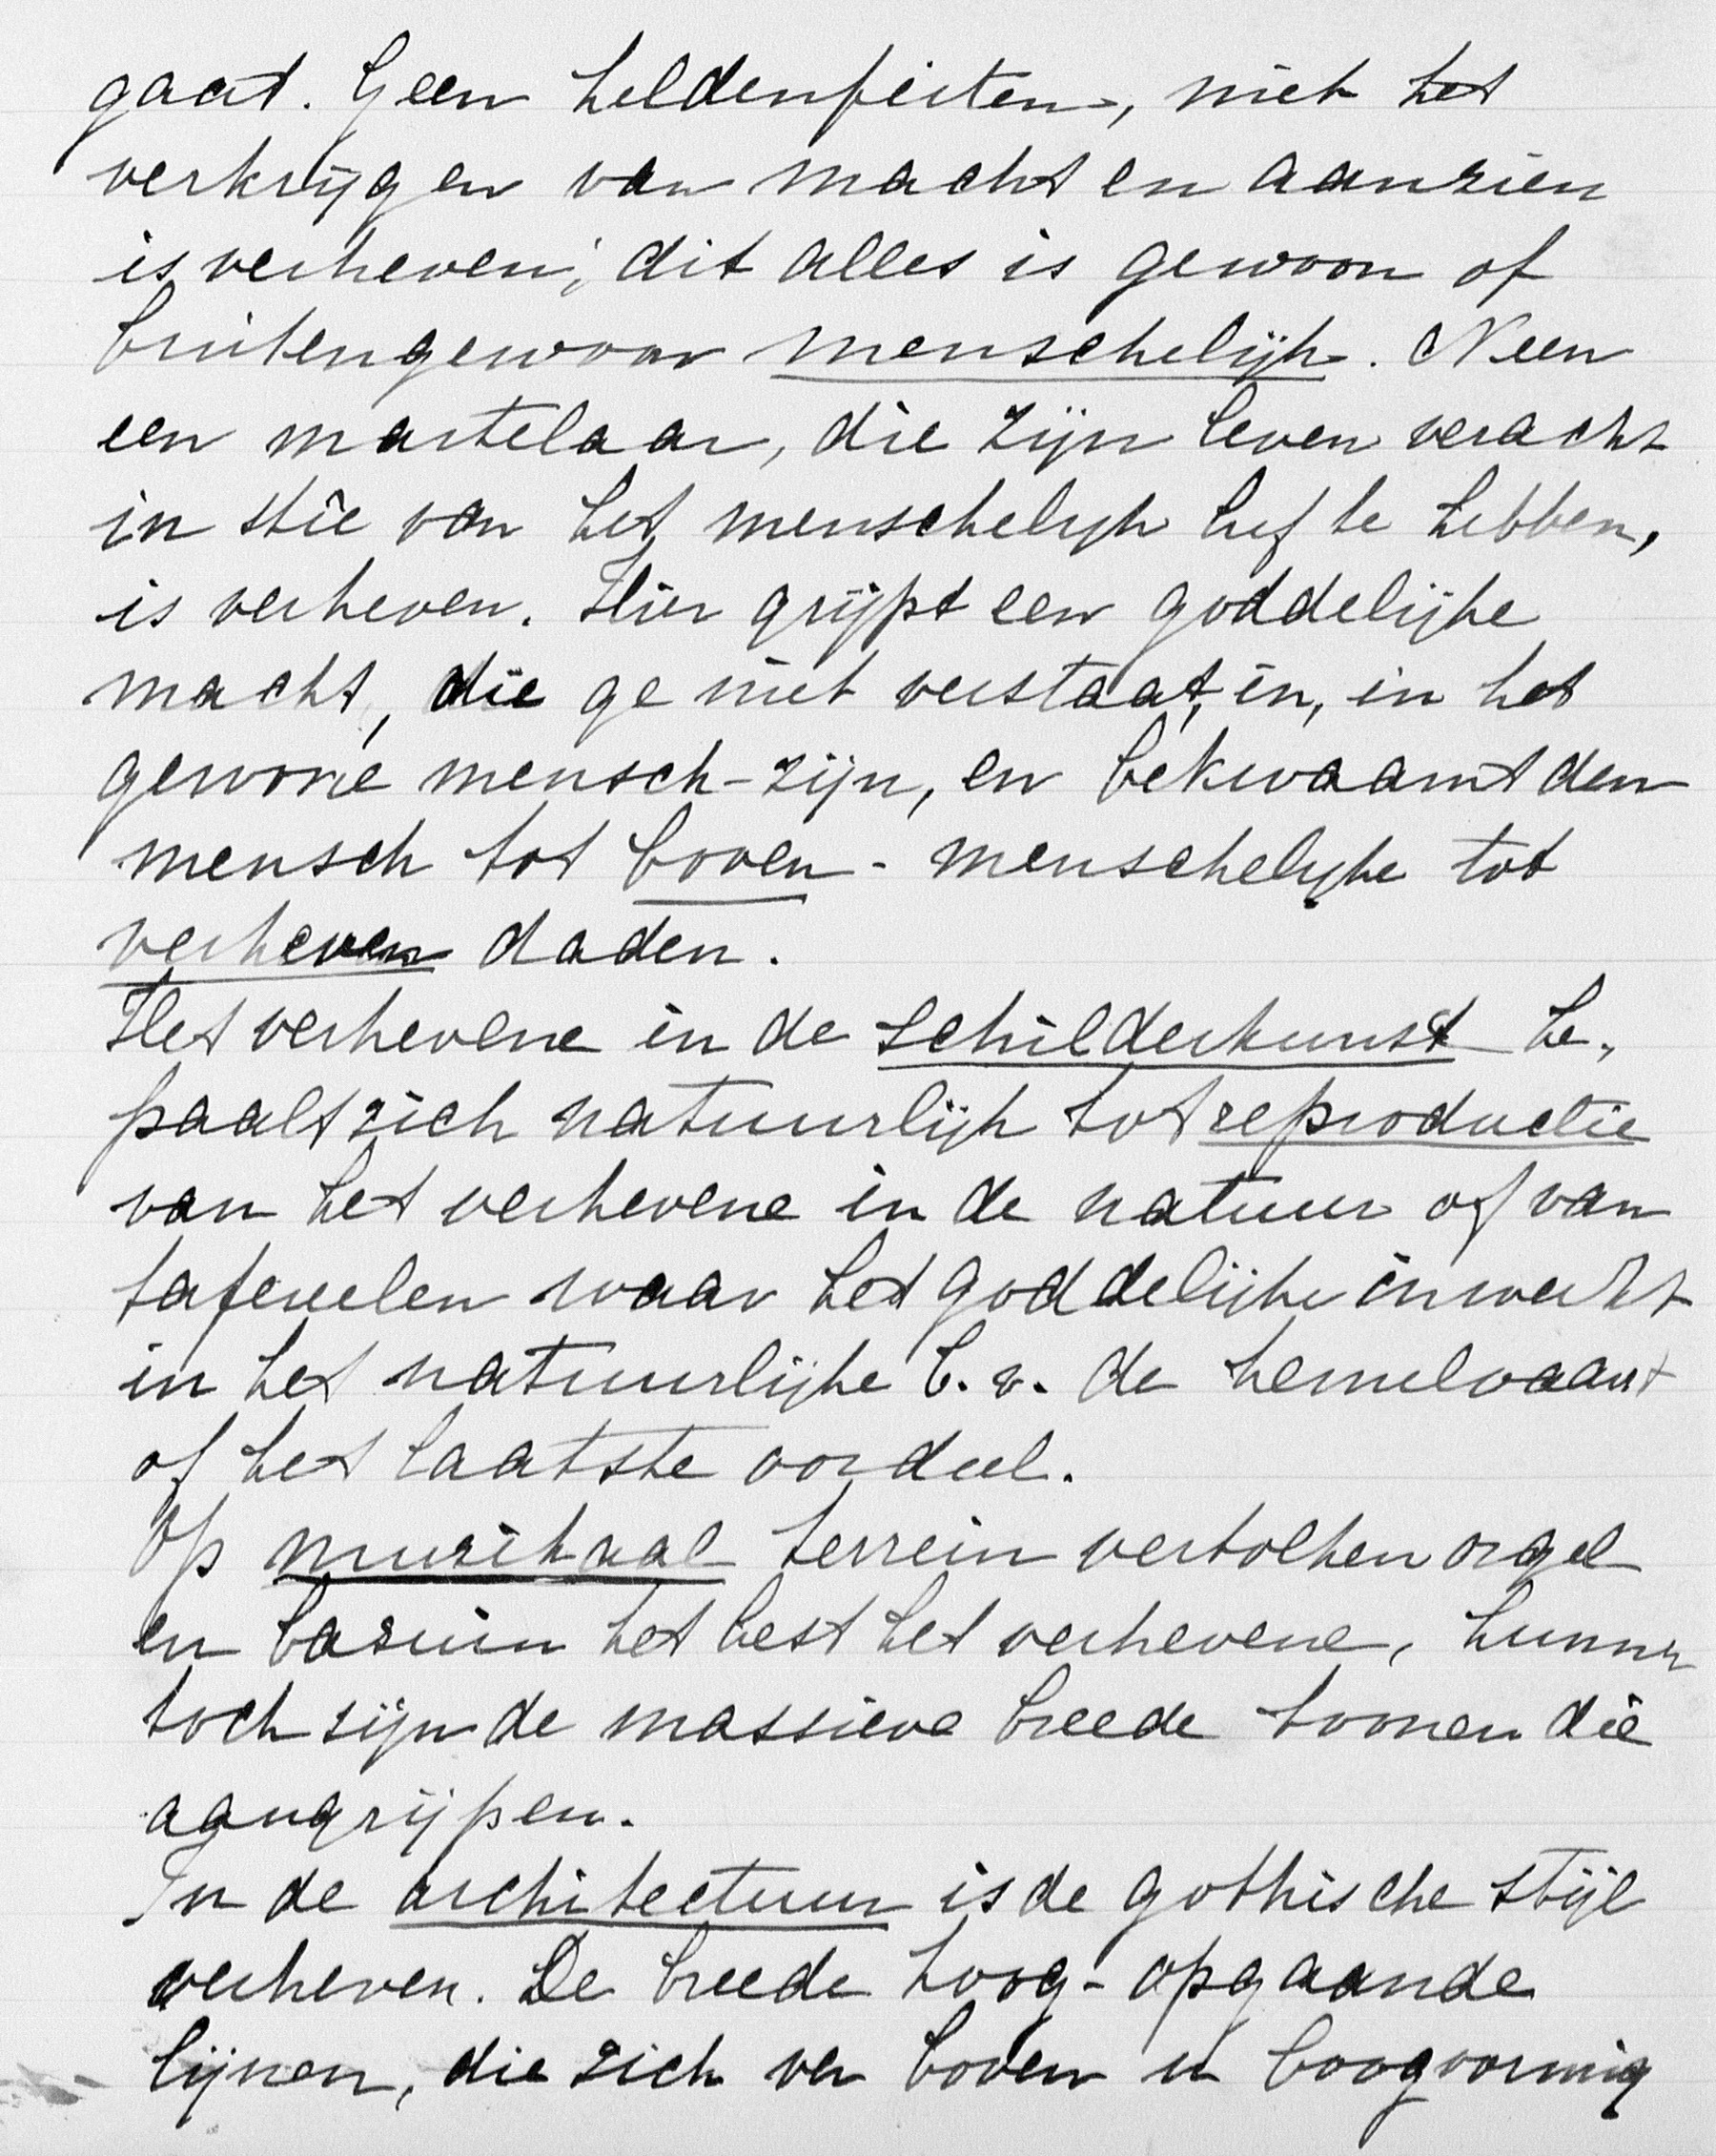 gaat. Geen heldenfeiten, niet het
verkrijgen van macht en aanzien
is verheven; dit alles is gewoon of
buitengewoon menschelijk. Neen
een martelaar, die zijn leven veracht
in stêe van het menschelijk lief te hebben,
is verheven. Hier grijpt een goddelijke
macht, die ge niet verstaat, in, in het
gewone mensch-zijn, en bekwaamt den
mensch tot boven-menschelijke tot
verheven daden.
Het verhevene in de schilderkunst be-
paalt zich natuurlijk tot reproductie
van het verhevene in de natuur of van
tafereelen waar het goddelijke inwerkt
in het natuurlijke b.v. de hemelvaart
of het laatste oordeel.
Op muzikaal terrein vertolken orgel
en bazuin het best het verhevene, hunne
toch zijn de massieve breede toonen die
aangrijpen.
In de architectuur is de gothische stijl
verheven. De breede hoog-opgaande
lijnen, die zich ver boven u boogvormig